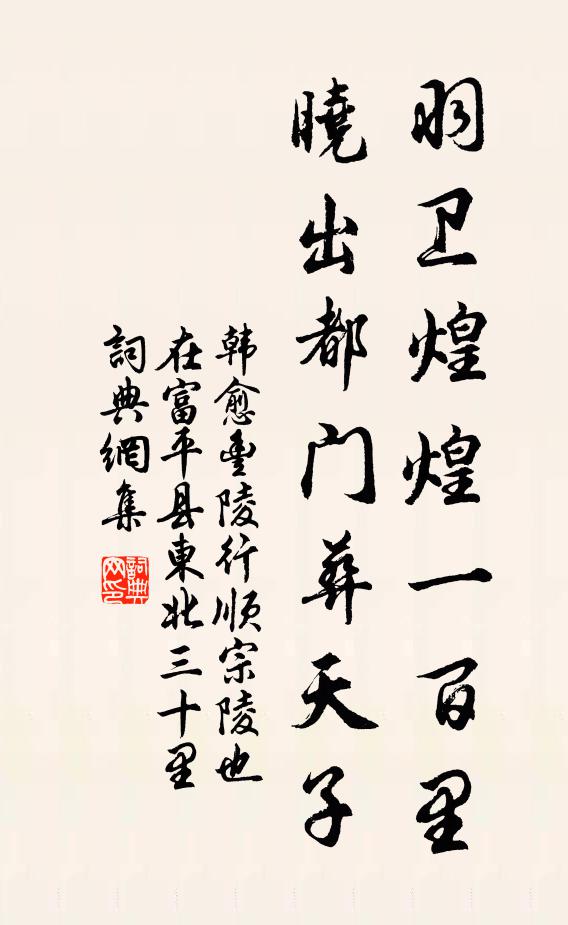 羽卫煌煌一百里
曉出都门葬天子
韩愈豊陵行顺宗陵也
在富平县東北三十里
詞典網集
詞典网印